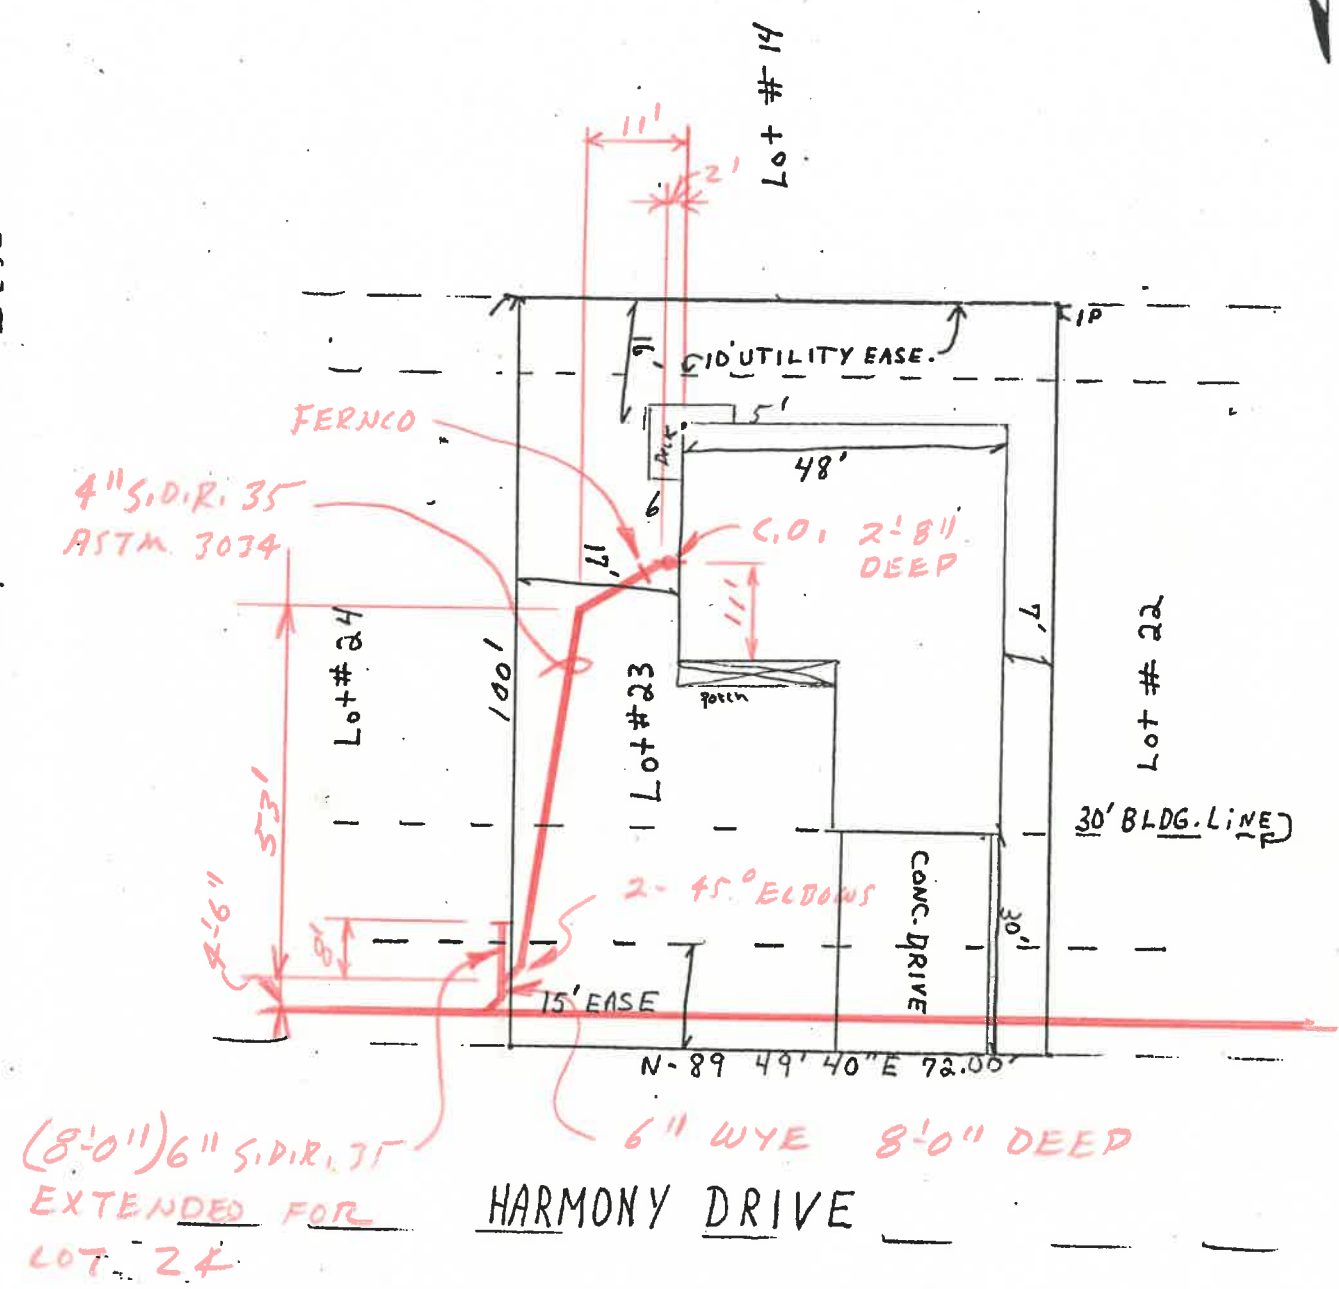 Lot # 14
11'
2'
1P
16'
10' UTILITY EASE.
FERNCO
5'
Deck
48'
4" S.D.R. 35
ASTM 3034
6
C.O. 2'-8"
DEEP
17'
11'
7'
Lot # 24
100'
Lot # 23
Porch
Lot # 22
53'
30' BLDG. LINE
2- 45° ELBOWS
CONC. DRIVE
30'
4'-6"
8'
15' EASE
N- 89 49' 40" E 72.00'
(8'-0") 6" S.D.R. 35
EXTENDED FOR
LOT 24
6" WYE 8'-0" DEEP
HARMONY DRIVE